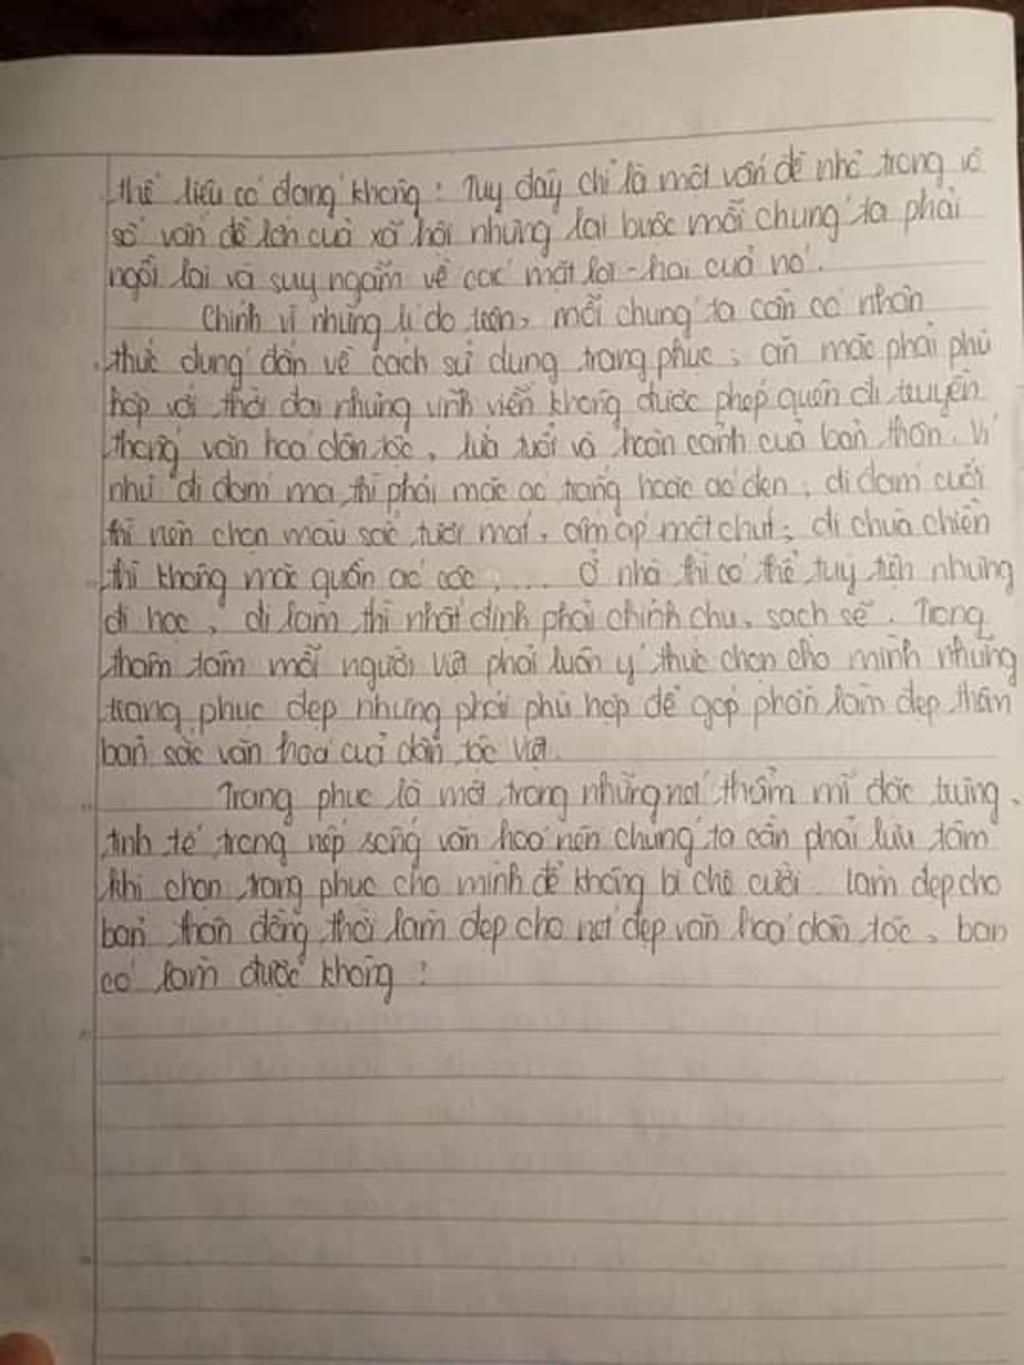 thế liệu có đáng không? Tuy đây chỉ là một vấn đề nhỏ trong vô
số vấn đề lớn của xã hội nhưng lại buộc mỗi chúng ta phải
ngồi lại và suy ngẫm về các mặt lợi - hại của nó.
Chính vì những lí do trên, mỗi chúng ta cần có nhận
thức đúng đắn về cách sử dụng trang phục; ăn mặc phải phù
hợp với thời đại nhưng vĩnh viễn không được phép quên đi truyền
thống văn hoá dân tộc, lứa tuổi và hoàn cảnh của bản thân. Ví
như đi đám ma thì phải mặc áo trắng hoặc áo đen; đi đám cưới
thì nên chọn màu sắc tươi mát, ấm áp một chút; đi chùa chiền
thì không mặc quần áo cộc, .... Ở nhà thì có thể tuỳ tiện nhưng
đi học, đi làm thì nhất định phải chỉnh chu, sạch sẽ. Trong
thâm tâm mỗi người Việt phải luôn ý thức chọn cho mình những
trang phục đẹp nhưng phải phù hợp để góp phần làm đẹp thêm
bản sắc văn hoá của dân tộc Việt.
Trang phục là một trong những nét thẩm mĩ đặc trưng,
tinh tế trong nếp sống văn hoá nên chúng ta cần phải lưu tâm
khi chọn trang phục cho mình để không bị chê cười. Làm đẹp cho
bản thân đồng thời làm đẹp cho nét đẹp văn hoá dân tộc, bạn
có làm được không?